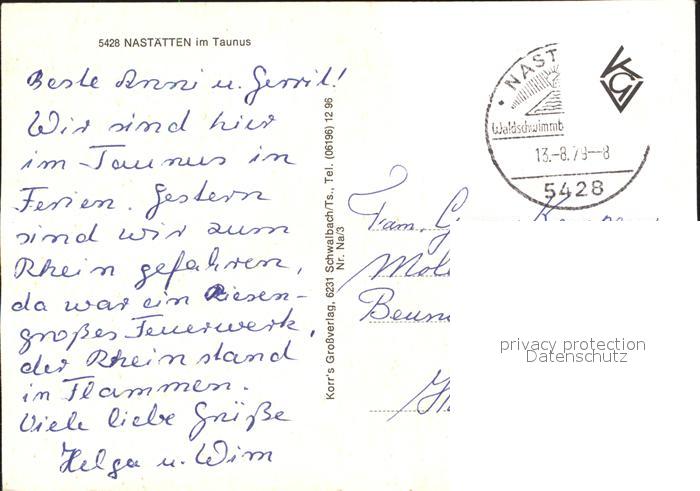 5428 NASTÄTTEN im Taunus
Beste Anni u. Gerrit!
Wir sind hier
im Taunus in
Ferien. Gestern
sind wir zum
Rhein gefahren,
da war ein Riesen-
großes Feuerwerk,
der Rhein stand
in Flammen.
Viele liebe Grüße
Helga u. Wim
Korr's Großverlag, 6231 Schwalbach/Ts., Tel. (06196) 12 96
Nr. Na/3
NAST
Waldschwimmb
13.-8.79--8
5428
Fam. G
Mol
Beun
privacy protection
Datenschutz